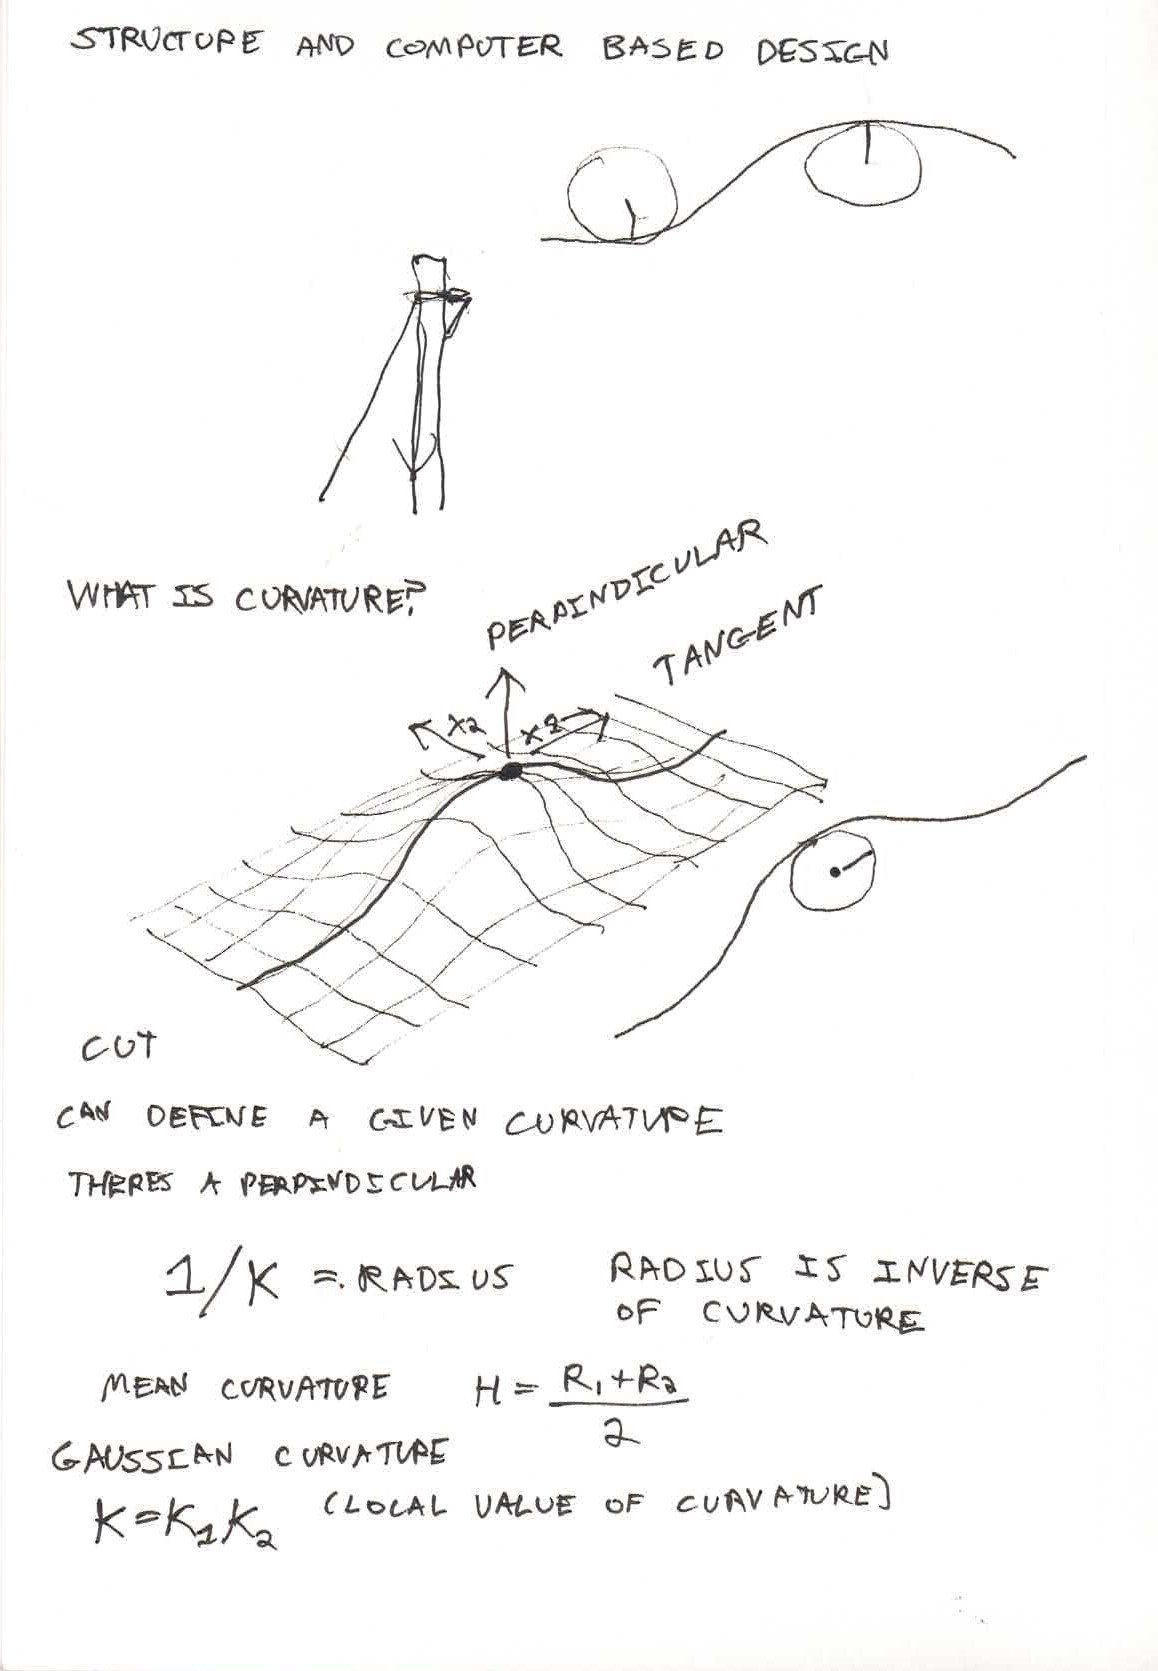 STRUCTURE AND COMPUTER BASED DESIGN
WHAT IS CURVATURE?
PERPINDICULAR
TANGENT
X2
CUT
CAN DEFINE A GIVEN CURVATURE
THERES A PERPINDICULAR
1/K = RADIUS
RADIUS IS INVERSE
OF CURVATURE
MEAN CURVATURE H = R1+R2
2
GAUSSIAN CURVATURE
K=K1K2 (LOCAL VALUE OF CURVATURE)